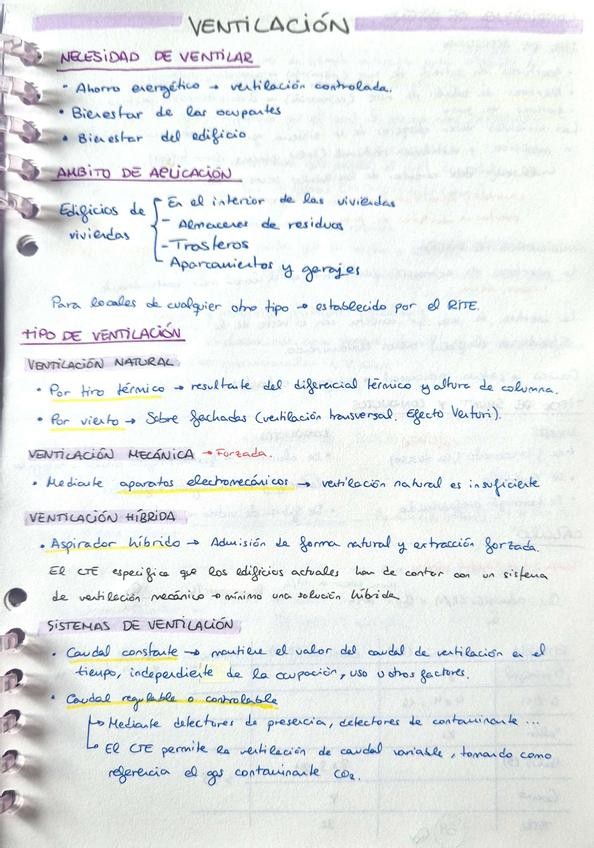 VENTILACIÓN
NECESIDAD DE VENTILAR
• Ahorro energético → ventilación controlada.
• Bienestar de los ocupantes
• Bienestar del edificio
AMBITO DE APLICACIÓN
Edificios de viviendas
En el interior de las viviendas
- Almacenes de residuos
- Trasteros
Aparcamientos y garajes
Para locales de cualquier otro tipo → establecido por el RITE.
TIPO DE VENTILACIÓN
VENTILACIÓN NATURAL
• Por tiro térmico → resultante del diferencial térmico y altura de columna.
• Por viento → Sobre fachadas (ventilación transversal. Efecto Venturi).
VENTILACIÓN MECÁNICA → Forzada.
• Mediante aparatos electromecánicos → ventilación natural es insuficiente
VENTILACIÓN HÍBRIDA
• Aspirador híbrido → Admisión de forma natural y extracción forzada.
El CTE especifica que los edificios actuales han de contar con un sistema
de ventilación mecánico → mínimo una solución híbrida
SISTEMAS DE VENTILACIÓN
• Caudal constante → mantiene el valor del caudal de ventilación en el
tiempo, independiente de la ocupación, uso u otros factores.
• Caudal regulable o controlable
↳ Mediante detectores de presencia, detectores de contaminante ...
↳ El CTE permite la ventilación de caudal variable, tomando como
referencia el gas contaminante CO2.